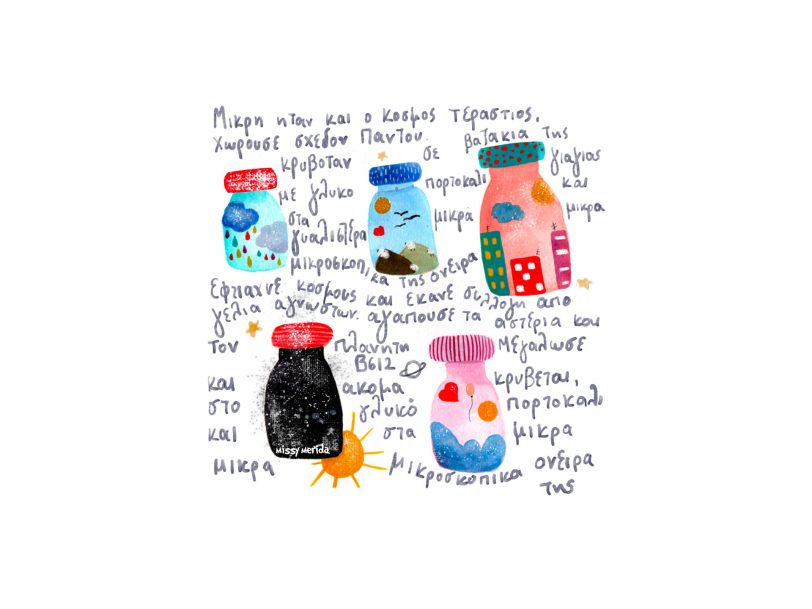 Μικρη ηταν και ο κοσμος τεραστιος.
Χωρουσε σχεδον παντου.
κρυβοταν σε βαζακια της γιαγιας
με γλυκο πορτοκαλι και
στα γυαλιστερα μικρα μικρα
μικροσκοπικα της ονειρα
Εφτιαχνε κοσμους και εκανε συλλογη απο
γελια αγνωστων. αγαπουσε τα αστερια και
τον πλανητη B612 Μεγαλωσε
και ακομα κρυβεται,
στο γλυκό πορτοκαλι
και στα μικρα
μικρα Μικροσκοπικα ονειρα
της
missy merida